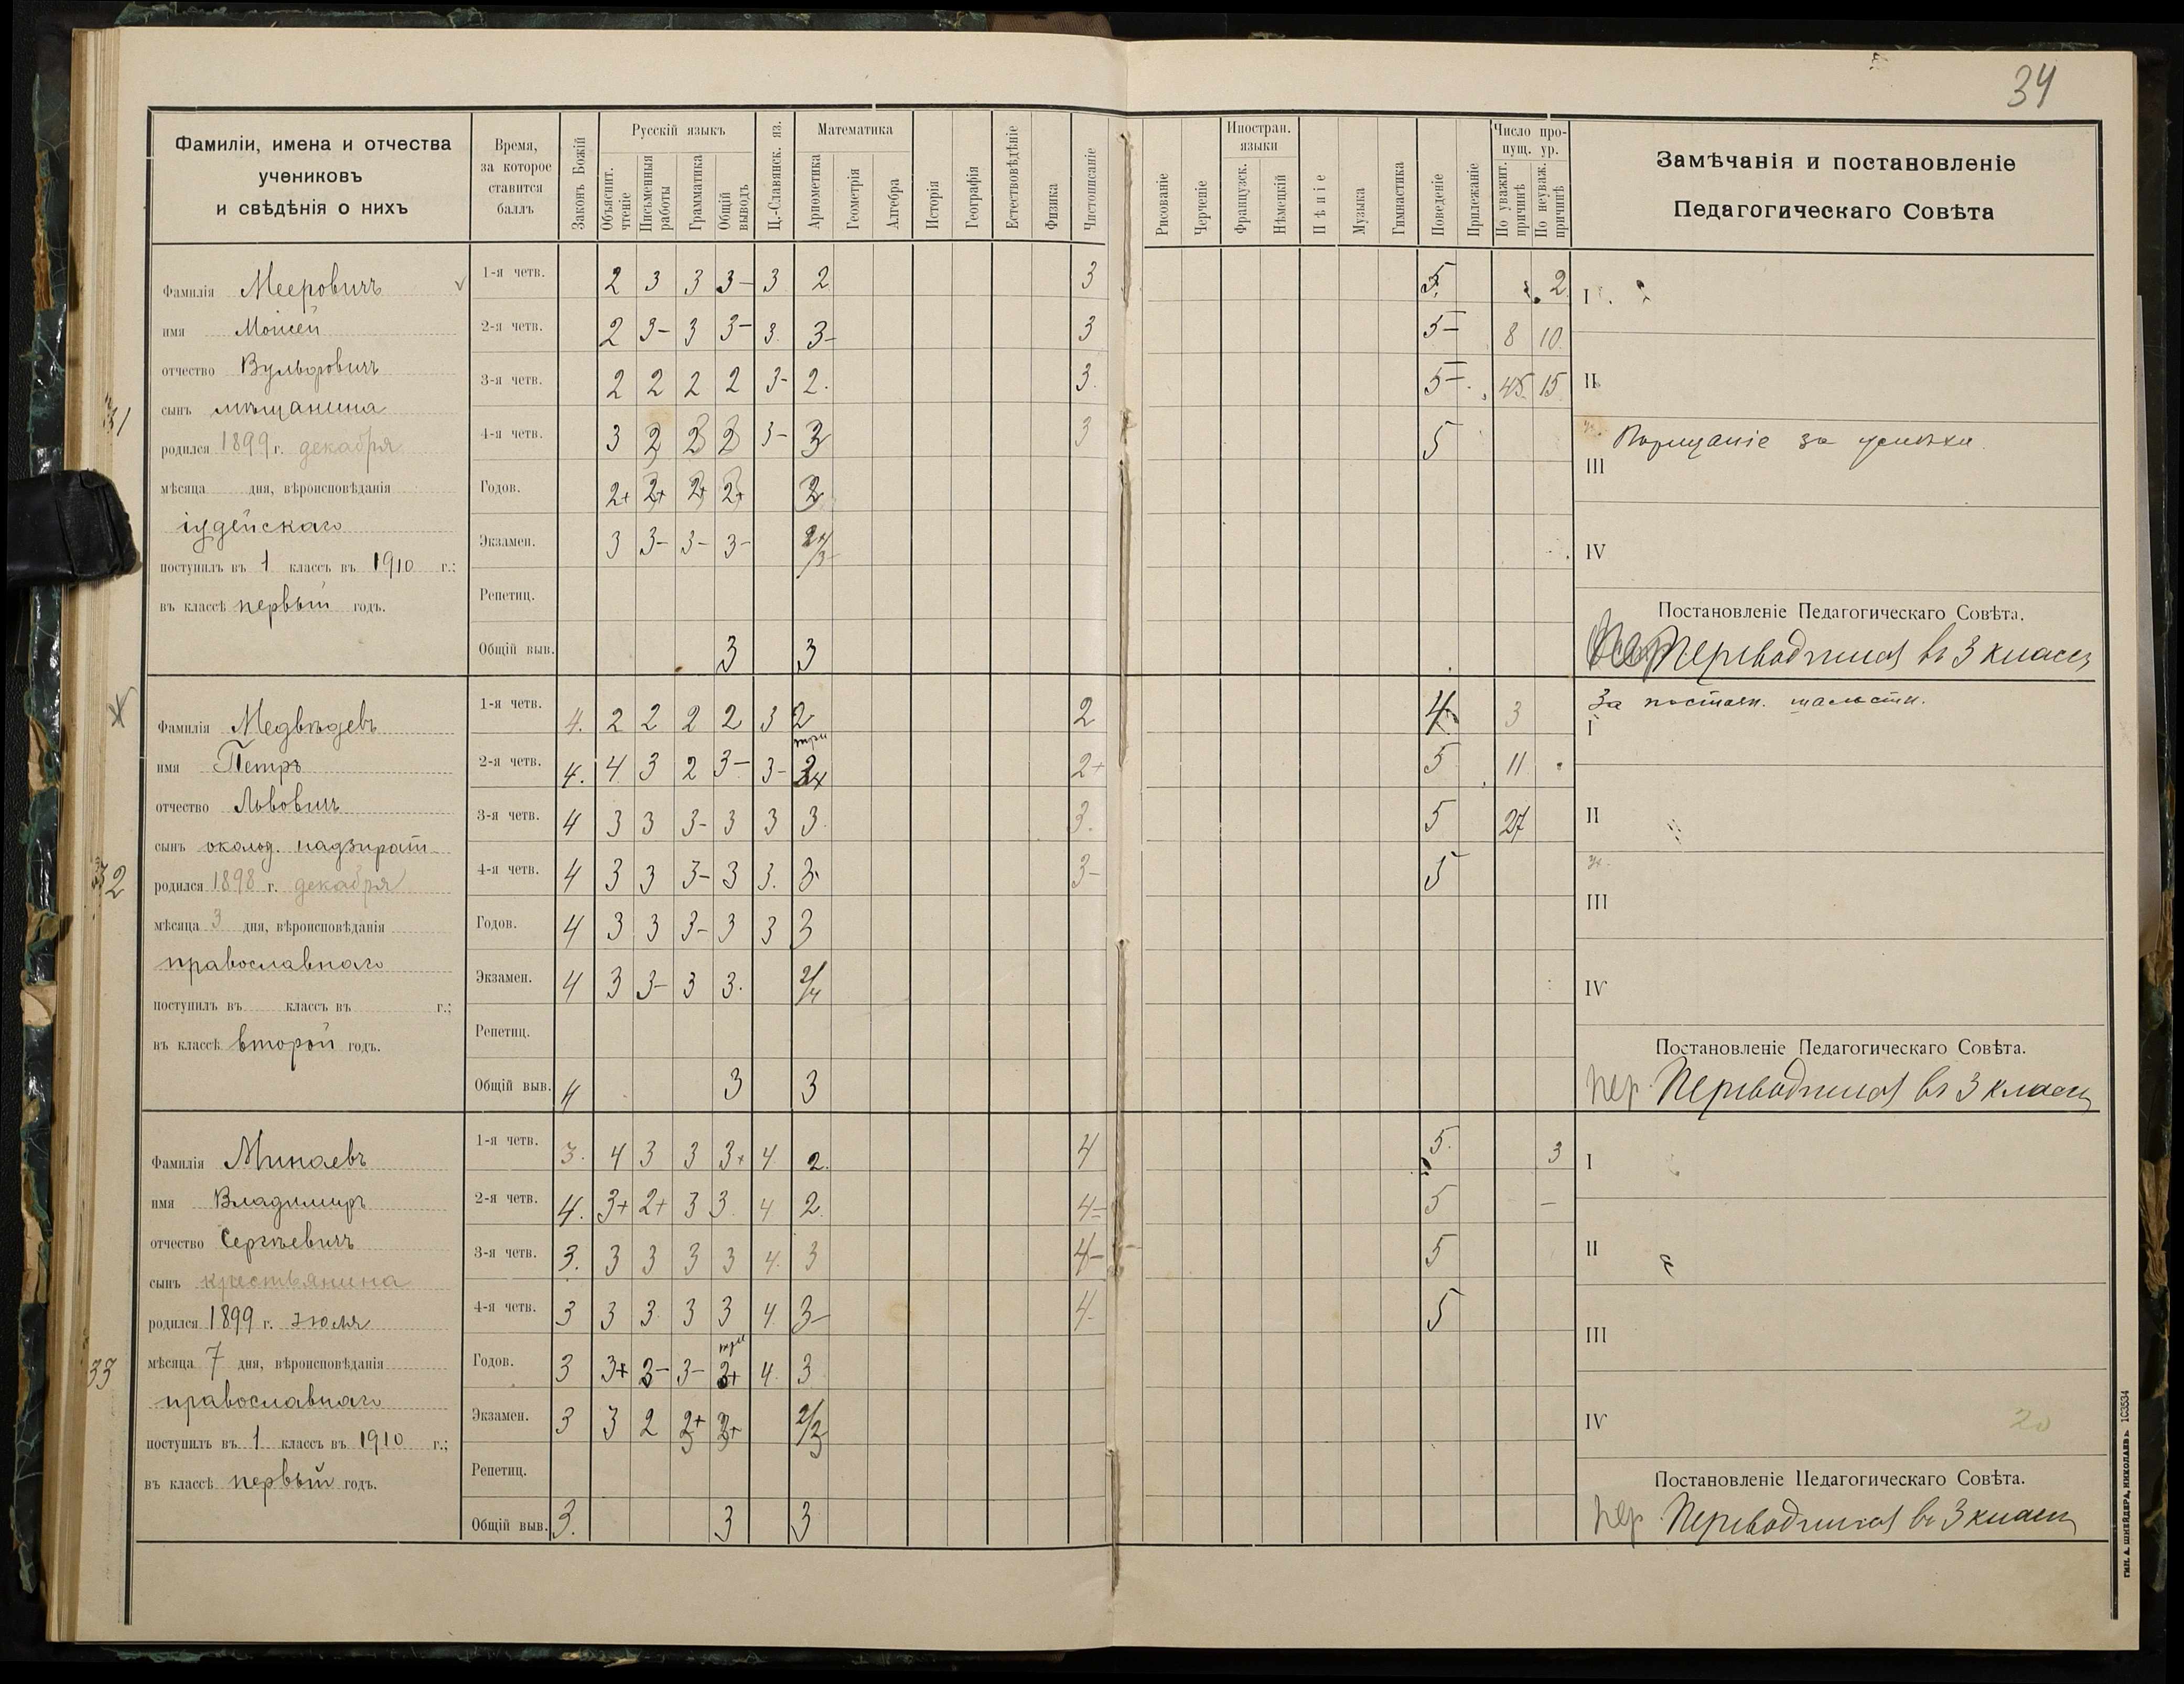 34
Фамиліи, имена и отчества
учениковъ
и свѣдѣнія о нихъ
Время,
за которое
ставится
баллъ
Законъ Божій
Русскій языкъ
Объяснит. чтеніе
Письменныя работы
Грамматика
Общій выводъ
Ц.-Славянск. яз.
Математика
Ариѳметика
Геометрія
Алгебра
Исторія
Географія
Естествовѣдѣніе
Физика
Чистописаніе
Рисованіе
Черченіе
Иностран. языки
Французск.
Нѣмецкій
Пѣніе
Музыка
Гимнастика
Поведеніе
Прилежаніе
Число пропущ. ур.
По уважит. причинѣ
По неуваж. причинѣ
Замѣчанія и постановленіе
Педагогическаго Совѣта
31
Фамилія Мееровичъ
имя Моисей
отчество Вульфовичъ
сынъ мѣщанина
родился 1899 г. декабря
мѣсяца дня, вѣроисповѣданія
іудейскаго
поступилъ въ 1 классъ въ 1910 г.;
въ классѣ первый годъ.
1-я четв. 2 3 3 3- 3 2 3 5 2
2-я четв. 2 3- 3 3- 3. 3- 3 5- 8 10
3-я четв. 2 2 2 2 3- 2. 3. 5- 45 15
4-я четв. 3 2 3- 3 5
Годов. 2+ 2+ 2+ 2+
Экзамен. 3 3- 3- 3-
Репетиц.
Общій выв. 3 3
I
II
Порицаніе за успѣхи
III
IV
Постановленіе Педагогическаго Совѣта.
Переводится въ 3 классъ
32
Фамилія Медвѣдевъ
имя Петръ
отчество Львовичъ
сынъ околод. надзират
родился 1898 г. декабря
мѣсяца 3 дня, вѣроисповѣданія
православнаго
поступилъ въ классъ въ г.;
въ классѣ второй годъ.
1-я четв. 4. 2 2 2 2 3 2 2 4 3
три
2-я четв. 4. 4 3 2 3- 3- 2+ 5 11
3-я четв. 4 3 3 3- 3 3 3 3. 5 27
4-я четв. 4 3 3 3- 3 3. 3 3- 5
Годов. 4 3 3 3- 3 3 3
Экзамен. 4 3 3- 3 3. 2/4
Репетиц.
Общій выв. 4 3 3
За постоян. шалости.
I
II
III
IV
Постановленіе Педагогическаго Совѣта.
пер. Переводится въ 3 классъ
33
Фамилія Минаевъ
имя Владимиръ
отчество Сергѣевичъ
сынъ крестьянина
родился 1899 г. іюля
мѣсяца 7 дня, вѣроисповѣданія
православнаго
поступилъ въ 1 классъ въ 1910 г.;
въ классѣ первый годъ.
1-я четв. 3. 4 3 3 3+ 4 2. 4 5. 3
2-я четв. 4. 3+ 2+ 3 3. 4 2. 4- 5 -
3-я четв. 3. 3 3 3 3 4. 3 4- 5
4-я четв. 3 3 3 3 3 4. 3- 4- 5
три
Годов. 3 3+ 3- 3- 4. 3
Экзамен. 3 3 2 2/3
Репетиц.
Общій выв. 3. 3 3
I
II
III
IV
20
Постановленіе Педагогическаго Совѣта.
пер Переводится въ 3 классъ
ТИП. А. ШНЕЙДЕРА, НИКОЛАЕВЪ.